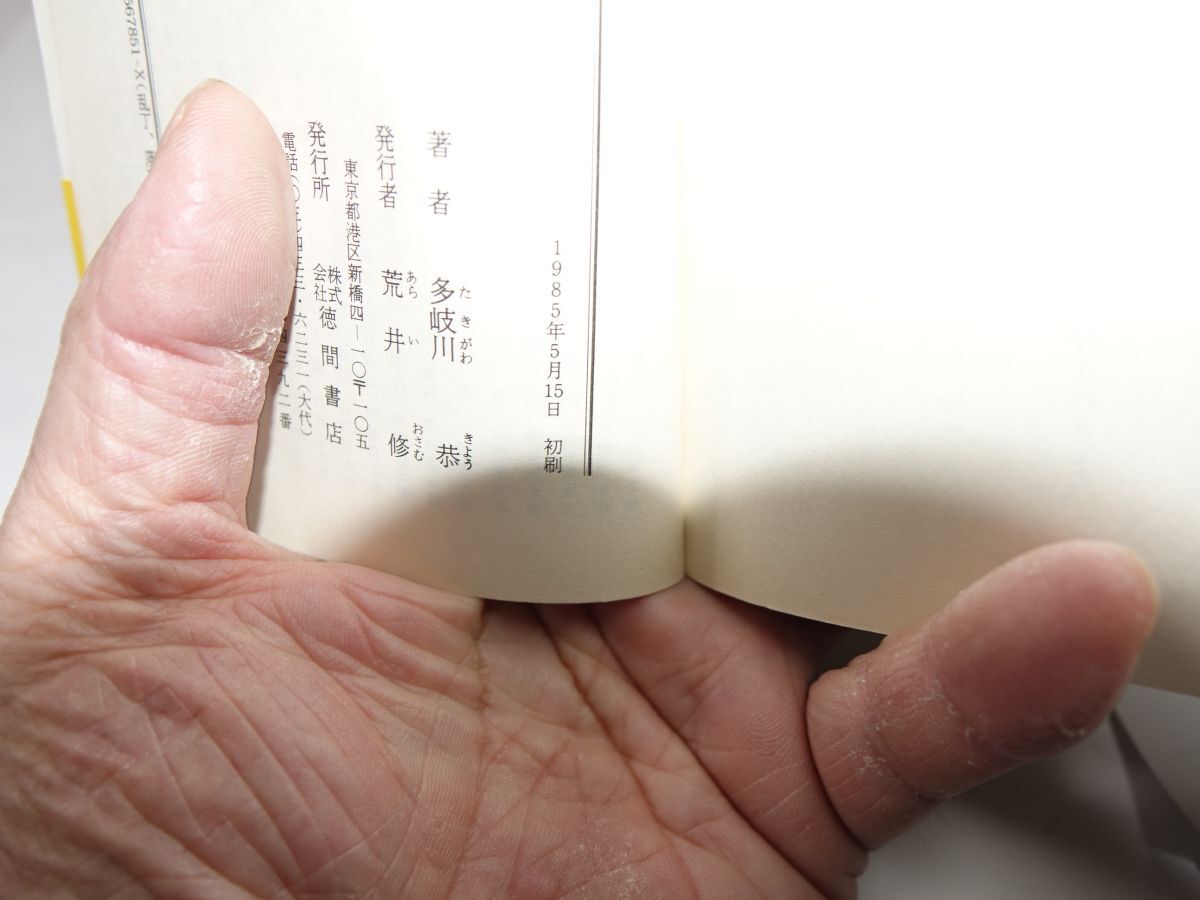 1985年5月15日　初刷
著者　多岐川　恭
たきがわ　きよう
発行者　荒井　修
あらい　おさむ
東京都港区新橋四―一〇〒一〇五
発行所　株式会社徳間書店
電話(〇三)四三三・六二三一(大代)
四三九二番
567851-X